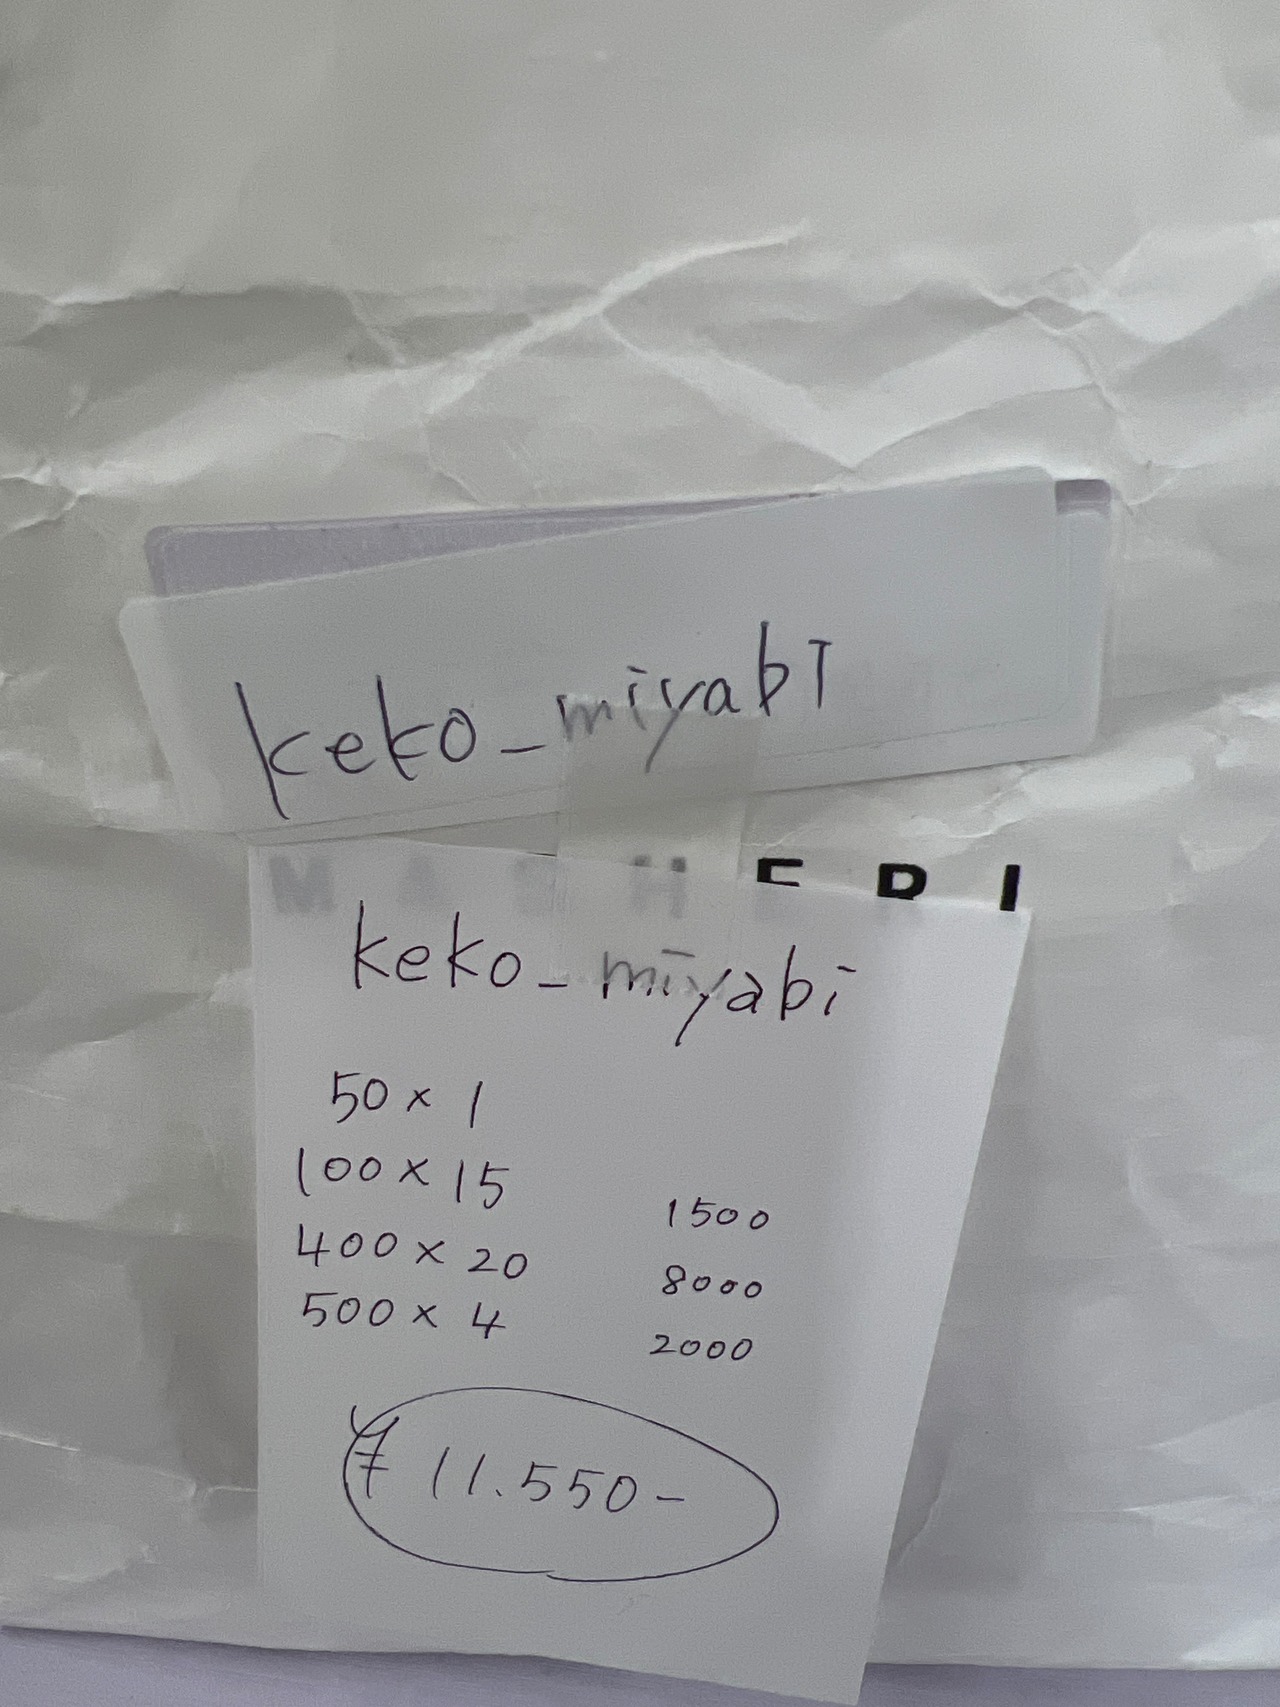 keko_miyabi
MASHERI
keko_miyabi
50 × 1
100 × 15 1500
400 × 20 8000
500 × 4 2000
¥ 11.550-